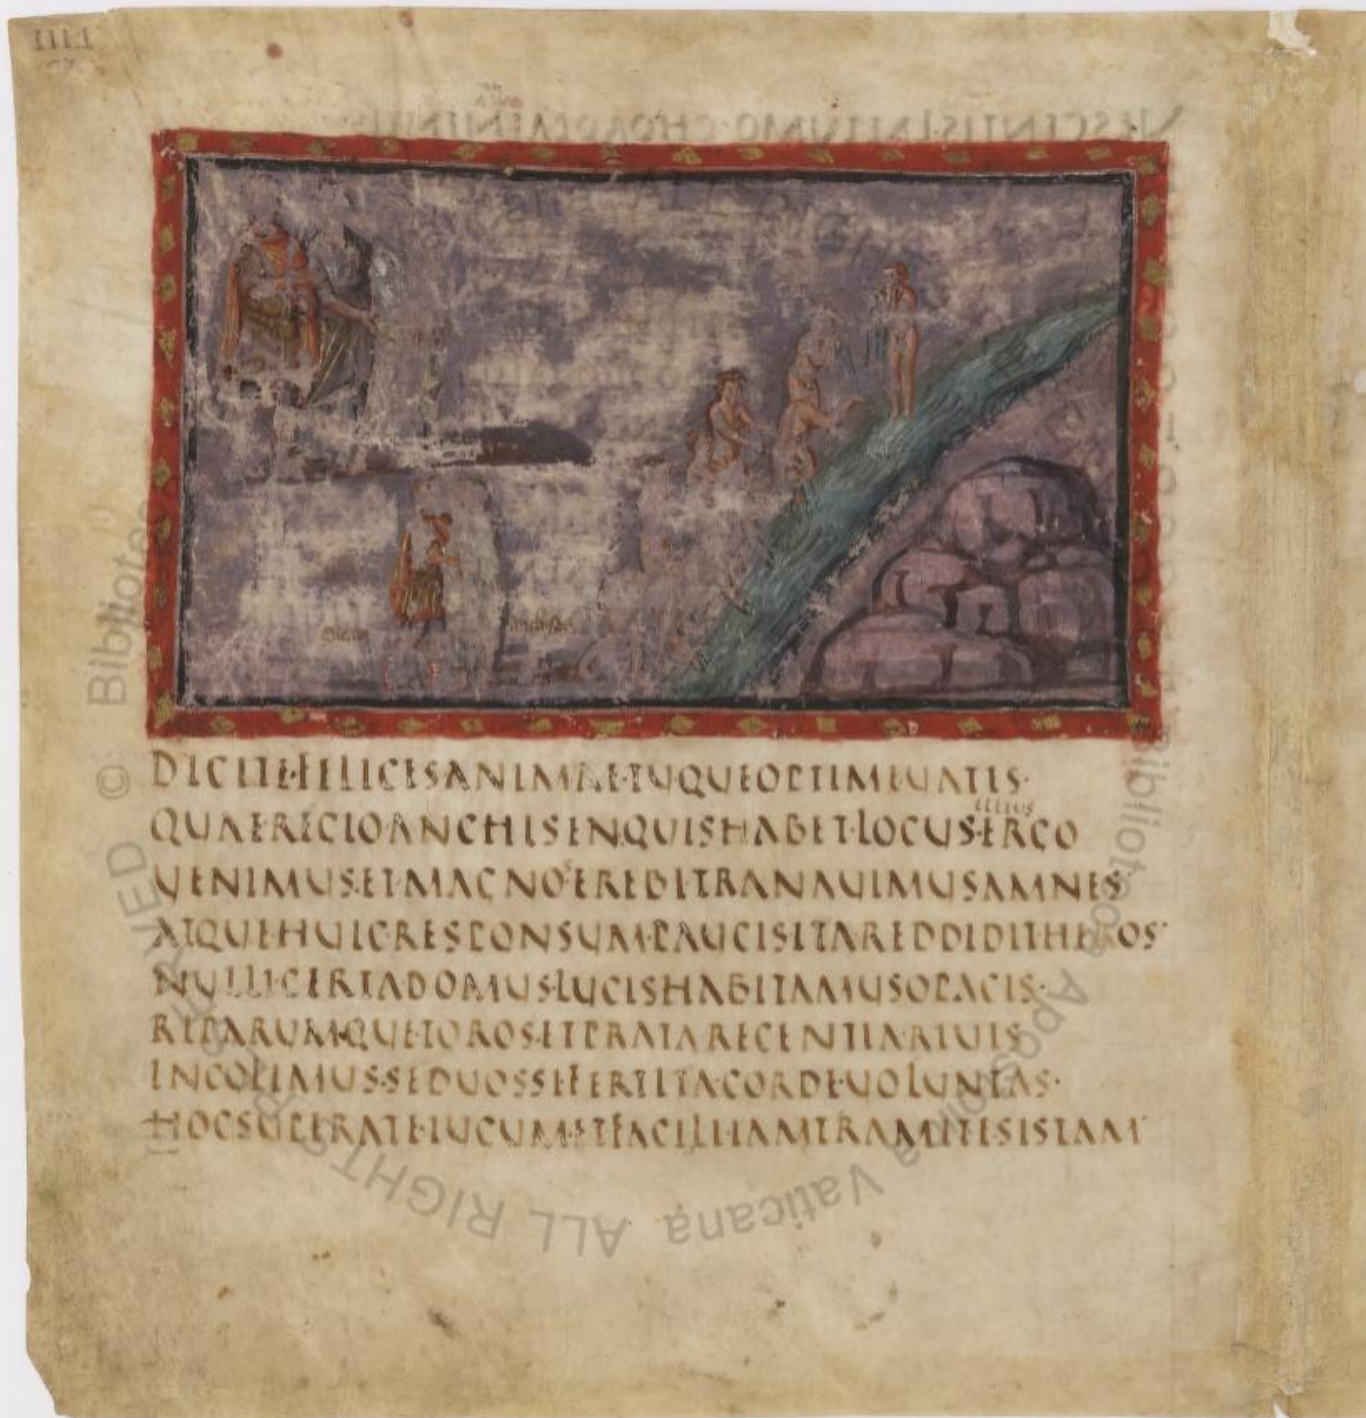 LIII
VESCENTIS LAETUMQ CHORO PAEANA
DICITE·FELICES ANIMAE·TUQUE OPTIME UATIS·
QUAE REGIO ANCHISEN·QUIS HABET·LOCUS·ERGO
illius
UENIMUS·ET·MAGNOS EREBI TRANAUIMUS AMNES
ATQUE HUIC RESPONSUM·PAUCIS ITA REDDIDIT HEROS
NULLI CERTA DOMUS·LUCIS HABITAMUS OPACIS·
RIPARUM·QUE TOROS·ET PRATA RECENTIA RIUIS
INCOLIMUS·SED UOS SI FERT ITA CORDE·UOLUNTAS·
HOC SUPERATE IUCUM·ET FACILI IAM TRAMITE SISTAM
© Biblioteca Apostolica Vaticana ALL RIGHTS RESERVED